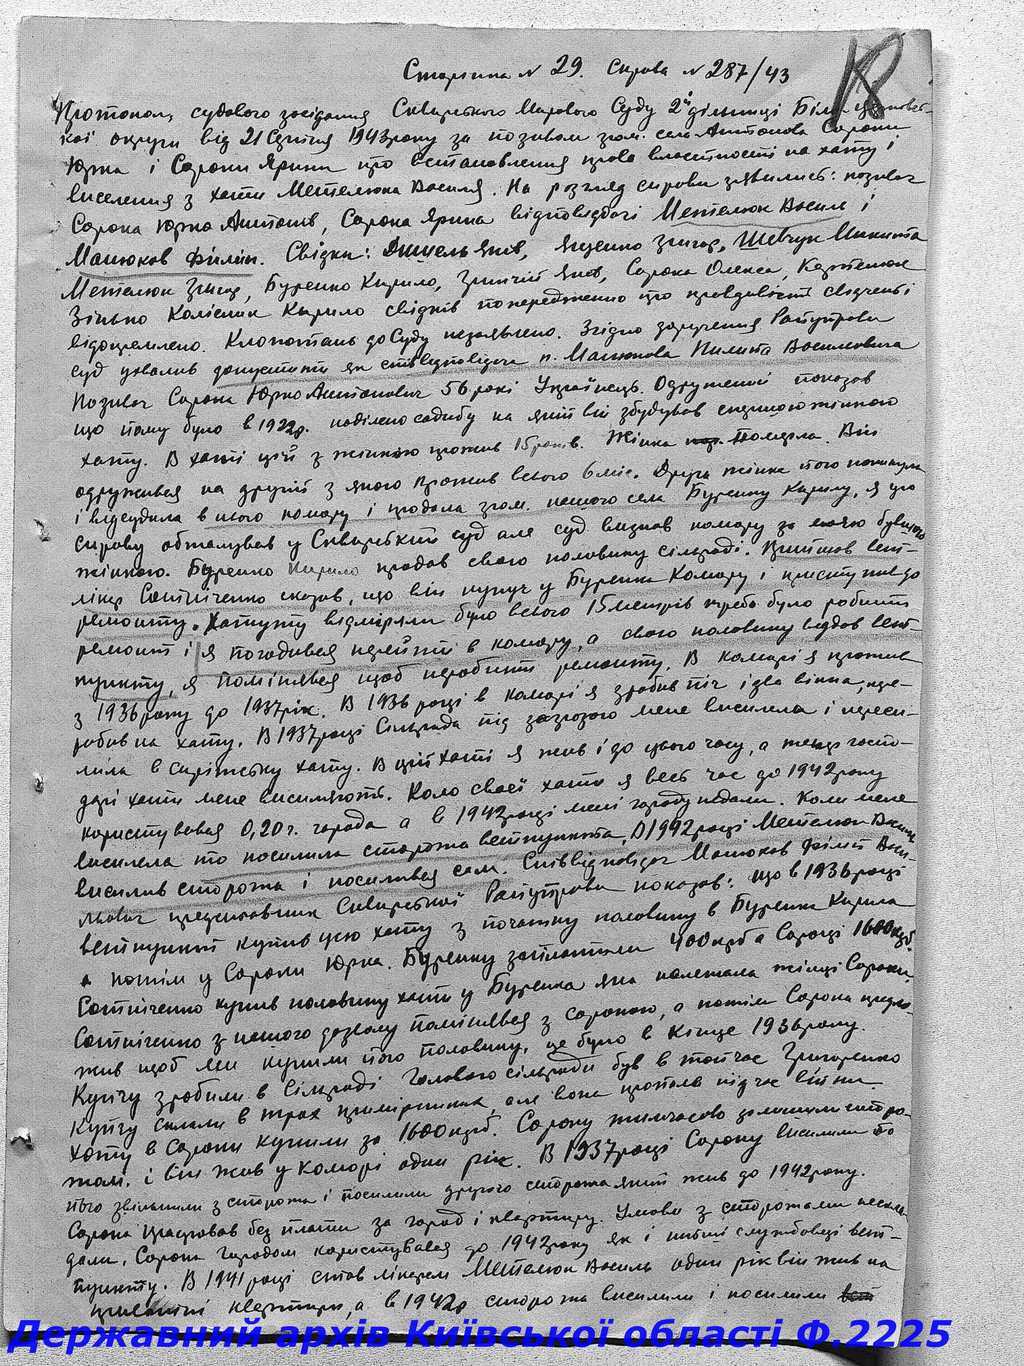 Сторінка № 29. Справа № 287/43
Протокол судового засідання Сквирського Мирового Суду 2ої дільниці Білоцерковсь-
кої округи від 21 Січня 1943 року за позивом гром. села Антонова Сороки
Юрка і Сороки Ярини про встановлення права власності на хату і
виселення з хати Метелюка Василя. На розгляд справи з'явились: позивач
Сорока Юрко Антонів, Сорока Ярина відповідачі Метелюк Василь і
Манюков Філіп. Свідки: Яків, Яценко Григор, Шевчук Микита
Метелюк Григ, Буренко Кирило, Яків, Сорока Олекса,
Зінько Колісник Кирило свідків попереджено про правдивість свідченнь і
відокремлено. Клопотань до Суду незаявлено. Згідно доручення Райуправи
суд ухвалив допустити як співвідповідача п. Манюкова Пилипа Васильовича
Позивач Сорока Юрко Антонович 56 років Українець Одружений показав
що йому було в 1922р. наділено садибу на якій він збудував спільно з жінкою
хату. В хаті цій з жінкою прожив 15 років. Жінка померла. Він
одружився на другій з якою прожив всього 6 міс. Друга жінка його покинула
і відсудила в нього комору і продала гром. нашого села Буренку Кирилу, я цю
справу обжалував у Сквирський суд але суд визнав комору за моєю бувшою
жінкою. Буренко Кирило продав свою половину сільраді. Прийшов вет-
лікар Сотніченко сказав, що він купує у Буренка Комору і приступив до
ремонту. Хату відміряли було всього 15 метрів треба було робити
ремонт і я погодився перейти в комору, а свою половину віддав вет-
пункту, я помінявся щоб не робити ремонту. В коморі я прожив
з 1936 року до 1937 рік. В 1936 році в коморі я зробив піч і два вікна, пере-
робив на хату. В 1937 році Сільрада під загрозою мене виселила і пересе-
лила в хату. В цій хаті я жив і до цього часу, а тепер госпо-
дарі хати мене виселяють. Коло своєї хати я весь час до 1942 року
користувався 0,20 г. города а в 1942 році мені городу недали. Коли мене
виселили то поселила сторожа ветпункта, В 1942 році Метелюк Василь
виселив сторожа і поселився сам. Співвідповідач Манюков Філіп Васи-
льович представник Сквирської Райуправи показав: що в 1936 році
ветпункт купив цю хату з початку половину в Буренка Кирила
а потім у Сороки Юрка. Буренку заплатили 400 крб а Сороці 1600 крб.
Сотніченко купив половину хати у Буренка яка належала жінці Сороки
Сотніченко з нашого дозволу помінявся з Сорокою, а потім Сорока предло-
жив щоб ми купили його половину, це було в кінце 1936 року.
Купчу зробили в Сільраді Головою сільради був в той час Григоренко
Купчу склали в трох примірниках, але вона пропала під час війни
Хату в Сороки купили за 1600 крб. Сороку тимчасово залишили сторо-
жом. і він жив у коморі один рік. В 1937 році Сороку виселили бо
його звільнили з сторожа і поселили другого сторожа який жив до 1942 року.
Сорока працював без плати за город і квартиру. Умови з сторожами нескла-
дали. Сорока городом користувався до 1942 року як і інші службовці вет-
пункту. В 1941 році став лікарем Метелюк Василь один рік він жив на
приватній квартирі, а в 1942р сторожа виселили і поселили
Державний архів Київської області Ф.2225